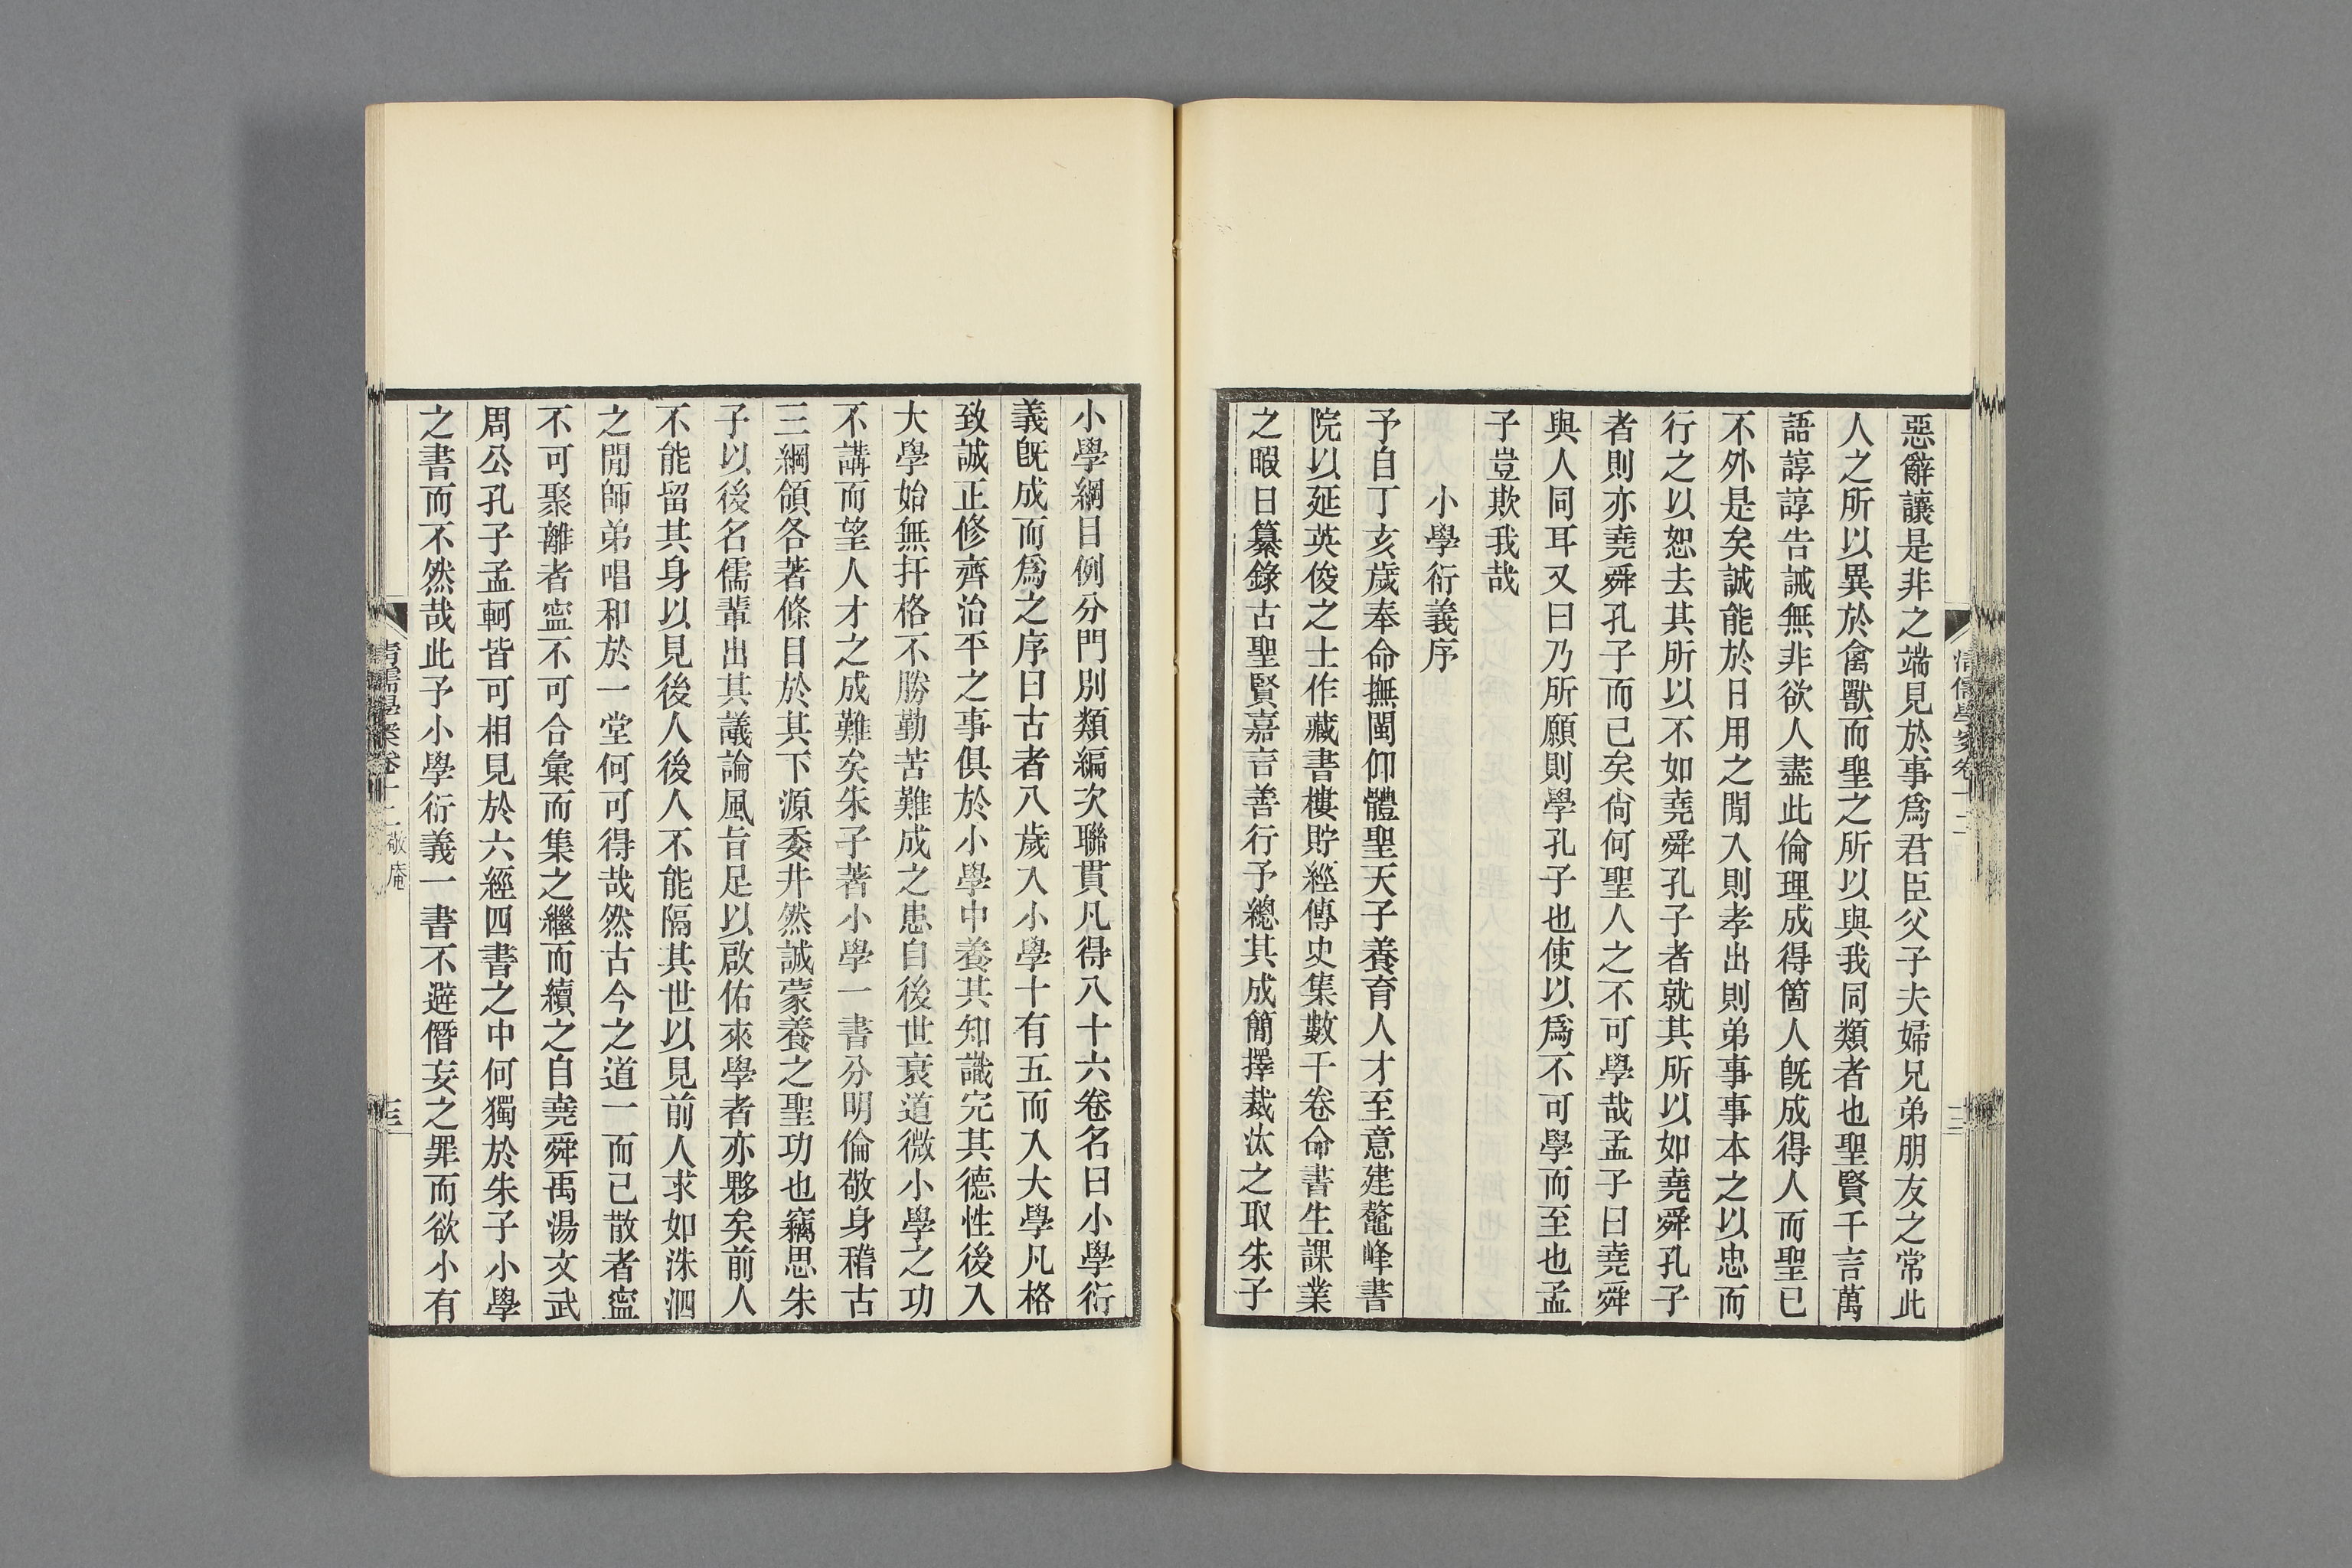 惡辭讓是非之端見於事爲君臣父子夫婦兄弟朋友之常此
人之所以異於禽獸而聖之所以與我同類者也聖賢千言萬
語諄諄告誡無非欲人盡此倫理成得箇人旣成得人而聖已
不外是矣誠能於日用之閒入則孝出則弟事事本之以忠而
行之以恕去其所以不如堯舜孔子者就其所以如堯舜孔子
者則亦堯舜孔子而已矣尙何聖人之不可學哉孟子曰堯舜
與人同耳又曰乃所願則學孔子也使以爲不可學而至也孟
子豈欺我哉
小學衍義序
予自丁亥歲奉命撫閩仰體聖天子養育人才至意建鼇峰書
院以延英俊之士作藏書樓貯經傳史集數千卷命書生課業
之暇日纂錄古聖賢嘉言善行予總其成簡擇裁汰之取朱子
小學綱目例分門別類編次聯貫凡得八十六卷名曰小學衍
義旣成而爲之序曰古者八歲入小學十有五而入大學凡格
致誠正修齊治平之事俱於小學中養其知識完其德性後入
大學始無扞格不勝勤苦難成之患自後世衰道微小學之功
不講而望人才之成難矣朱子著小學一書分明倫敬身稽古
三綱領各著條目於其下源委井然誠蒙養之聖功也竊思朱
子以後名儒輩出其議論風旨足以啟佑來學者亦夥矣前人
不能留其身以見後人後人不能隔其世以見前人求如洙泗
之閒師弟唱和於一堂何可得哉然古今之道一而已散者寍
不可聚離者寍不可合彙而集之繼而續之自堯舜禹湯文武
周公孔子孟軻皆可相見於六經四書之中何獨於朱子小學
之書而不然哉此予小學衍義一書不避僭妄之罪而欲小有
清儒學案卷十二 敬庵